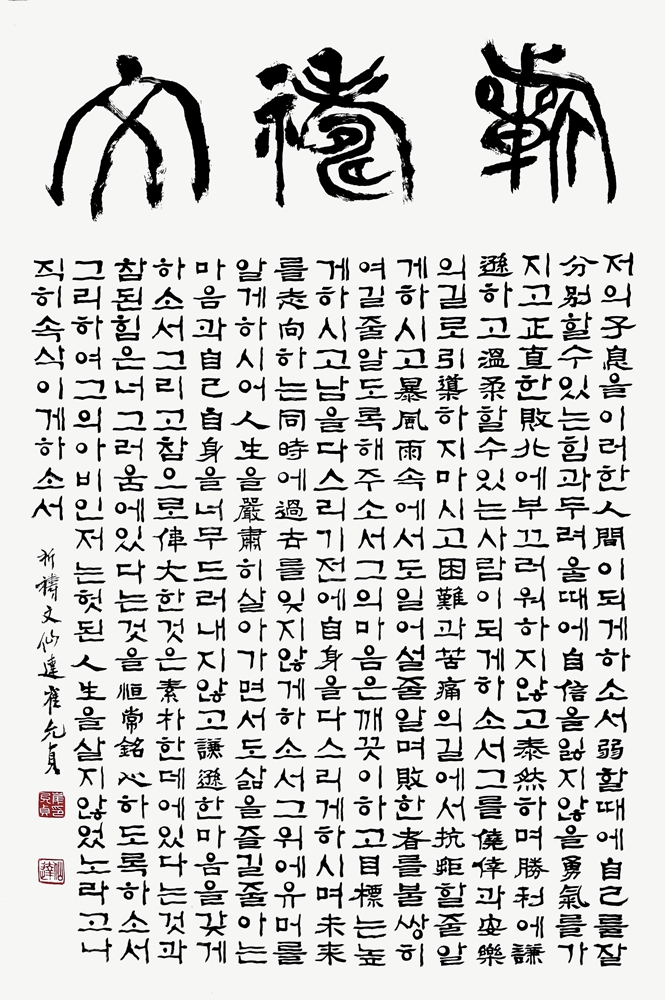 祈禱文
저의子息을이러한人間이되게하소서弱할때에自己를잘
分別할수있는힘과두려울때에自信을잃지않을勇氣를가
지고正直한敗北에부끄러워하지않고泰然하며勝利에謙
遜하고溫柔할수있는사람이되게하소서그를僥倖과安樂
의길로引導하지마시고困難과苦痛의길에서抗距할줄알
게하시고暴風雨속에서도일어설줄알며敗한者를불쌍히
여길줄알도록해주소서그의마음은깨끗이하고目標는높
게하시고남을다스리기전에自身을다스리게하시며未来
를走向하는同時에過去를잊지않게하소서그위에유머를
알게하시어人生을嚴肅히살아가면서도삶을즐길줄아는
마음과自己自身을너무드러내지않고謙遜한마음을갖게
하소서그리고참으로偉大한것은素朴한데에있다는것과
참된힘은너그러움에있다는것을恒常銘心하도록하소서
그리하여그의아비인저는헛된人生을살지않었노라고나
직히속삭이게하소서
祈禱文仙達崔允貞
仙達